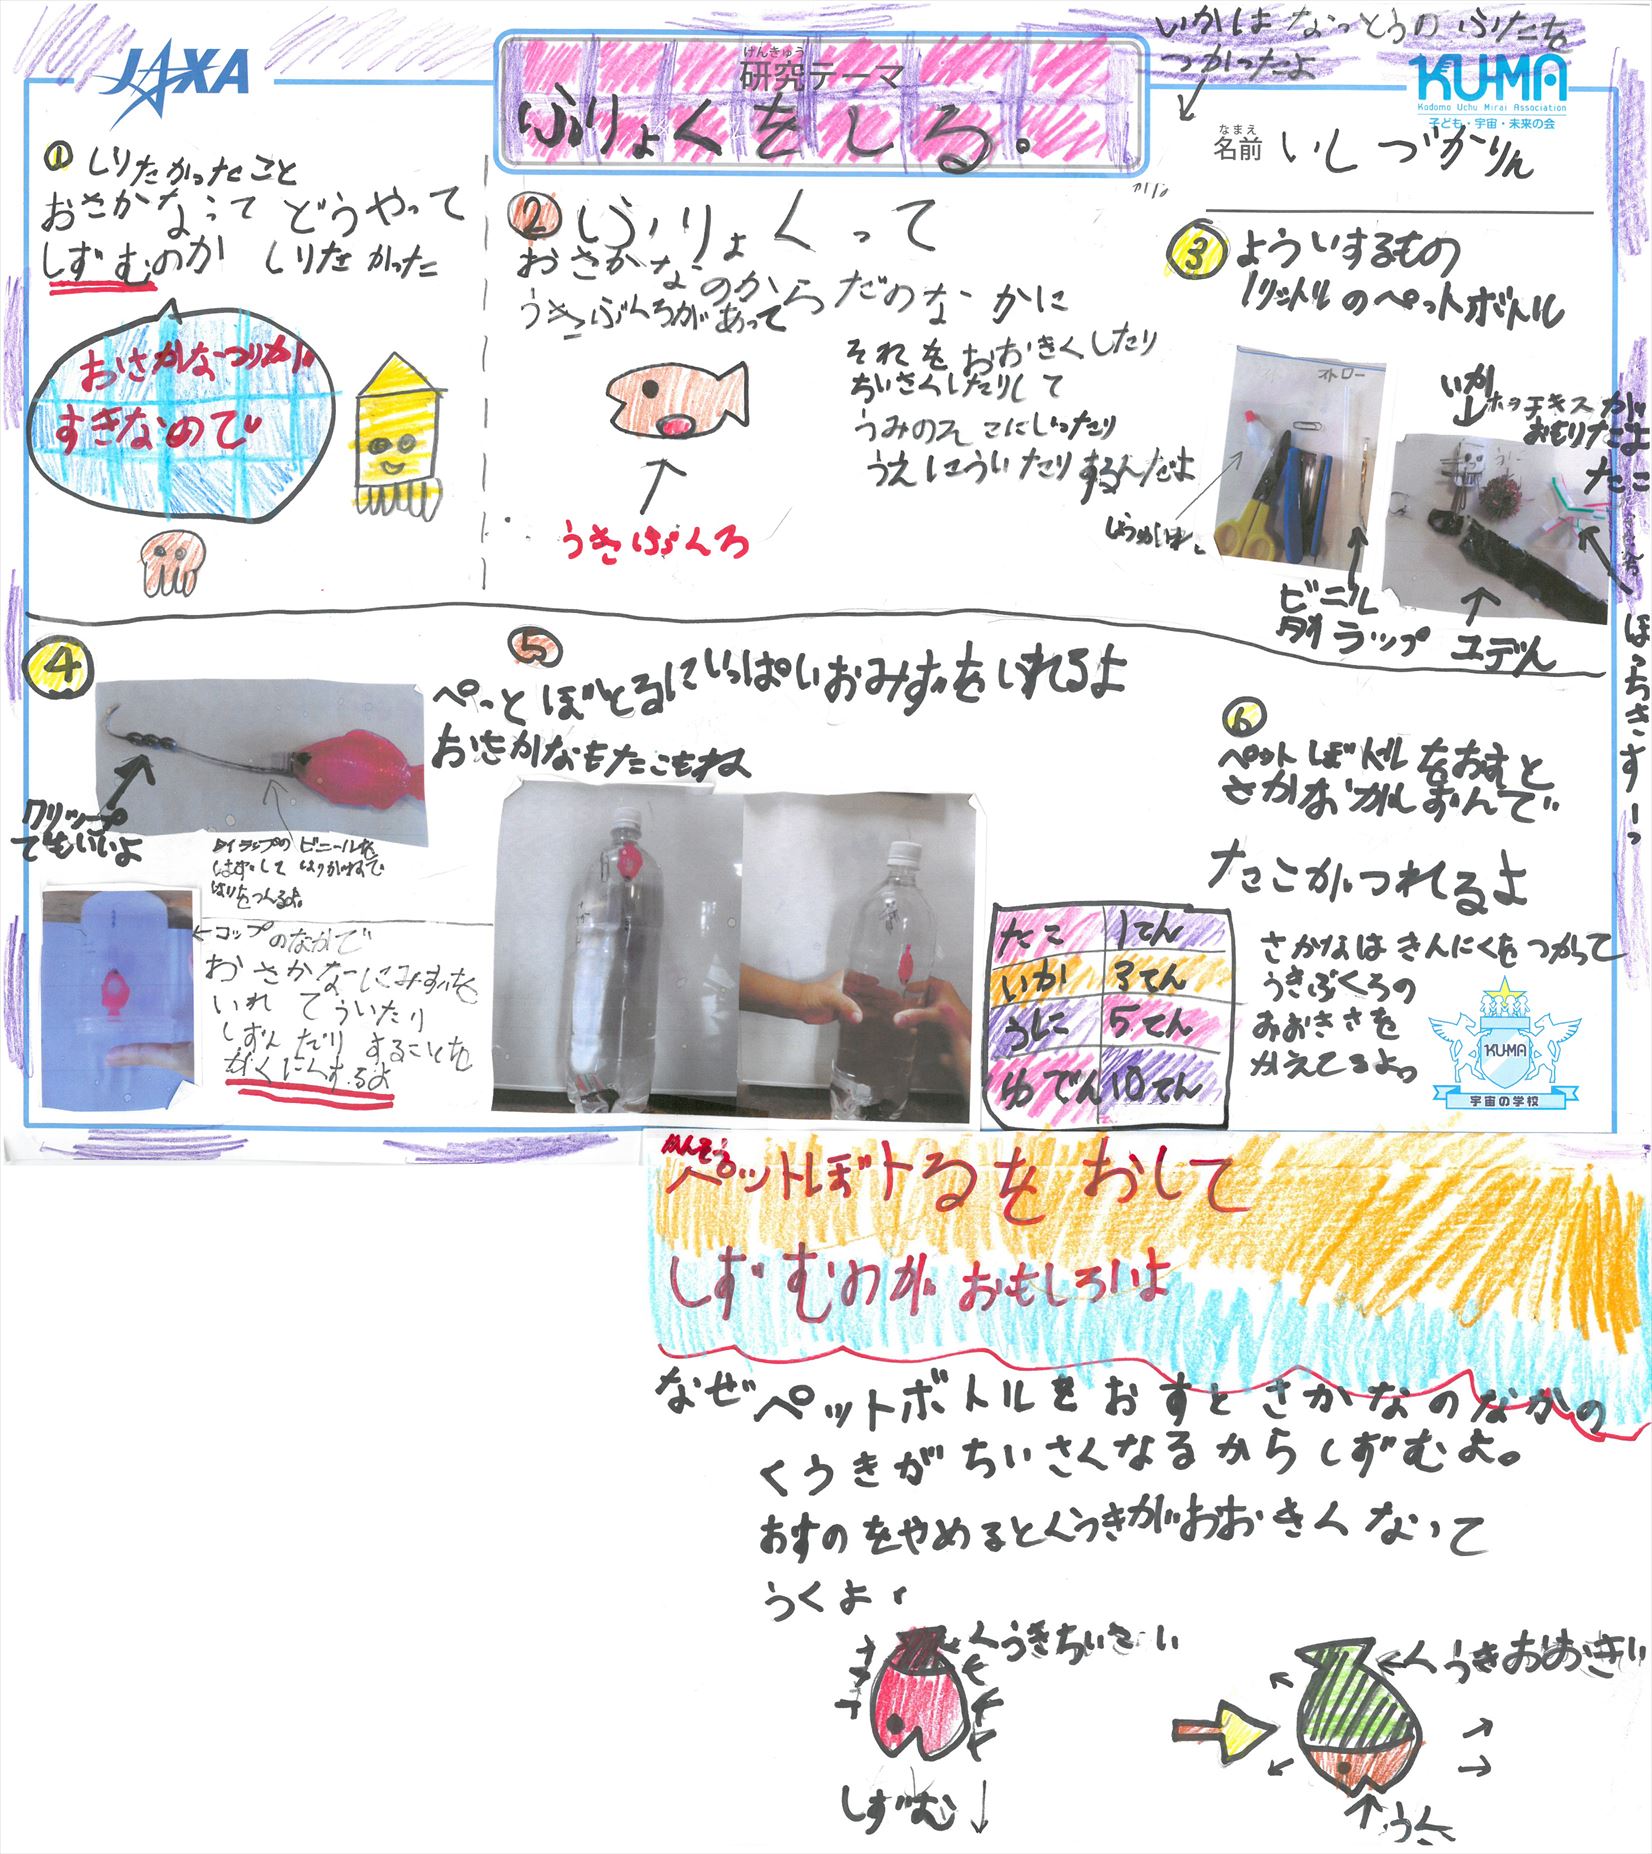 JAXA
けんきゅう
研究テーマ
ふりょくをしる。
いかはなっとうのふたを
つかったよ
KU-MA
Kodomo Uchu Mirai Association
子ども・宇宙・未来の会
なまえ
名前 いしづかりん
① しりたかったこと
おさかなって どうやって
しずむのか しりたかった
おさかなつりが
すきなので
② ふりょくって
おさかなのからだのなかに
うきぶくろがあって
それをおおきくしたり
ちいさくしたりして
うみのそこにいったり
うえにういたりするんだよ
うきぶくろ
③ よういするもの
1リットルのペットボトル
ストロー
しょうゆいれ
ビニール
タイラップ
いか
ホッチキスが
おもりだよ
うに
たこ
ユデん
④
クリップ
でもいいよ
タイラップのビニールを
はずして はりがねで
はりをつくるよ。
←コップのなかで
おさかなにみずを
いれてういたり
しずんだりすることを
かくにんするよ
⑤
ぺっとぼとるにいっぱいおみずをいれるよ
おさかなもたこもね
⑥
ペットぼトルをおすと
さかながしずんで
たこがつれるよ
たこ 1てん
いか 3てん
うに 5てん
ゆでん 10てん
さかなはきんにくをつかって
うきぶくろの
おおきさを
かえてるよ。
KU-MA
宇宙の学校
かんそう
ペットぼトるをおして
しずむのがおもしろいよ
なぜ ペットボトルをおすとさかなのなかの
くうきがちいさくなるからしずむよ。
おすのをやめるとくうきがおおきくなって
うくよ。
くうきちいさい
しずむ
くうきおおきい
うく